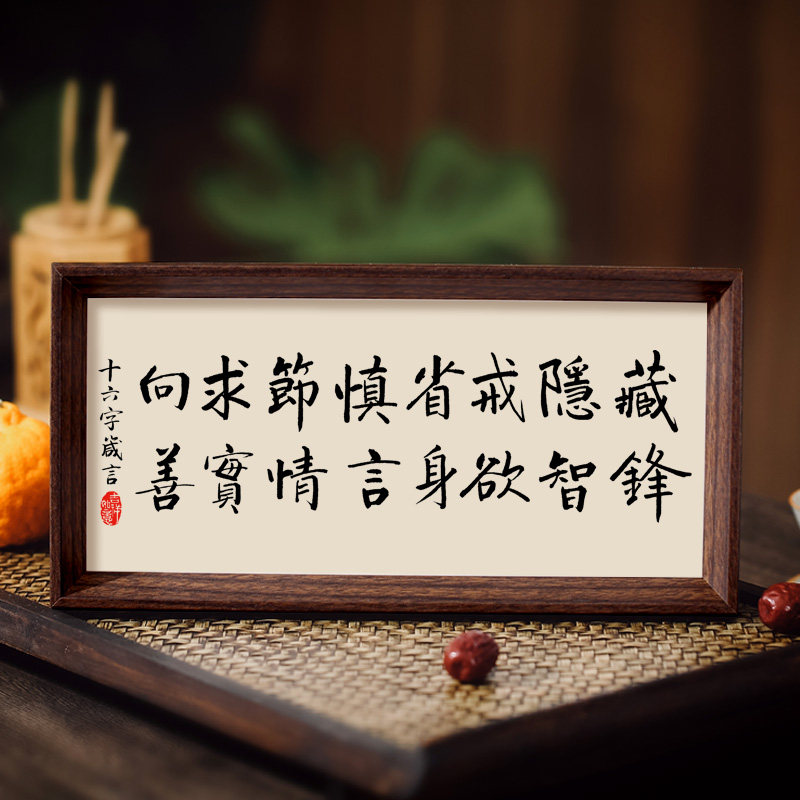 藏鋒
隱智
戒欲
省身
慎言
節情
求實
向善
十六字箴言
吉祥如意